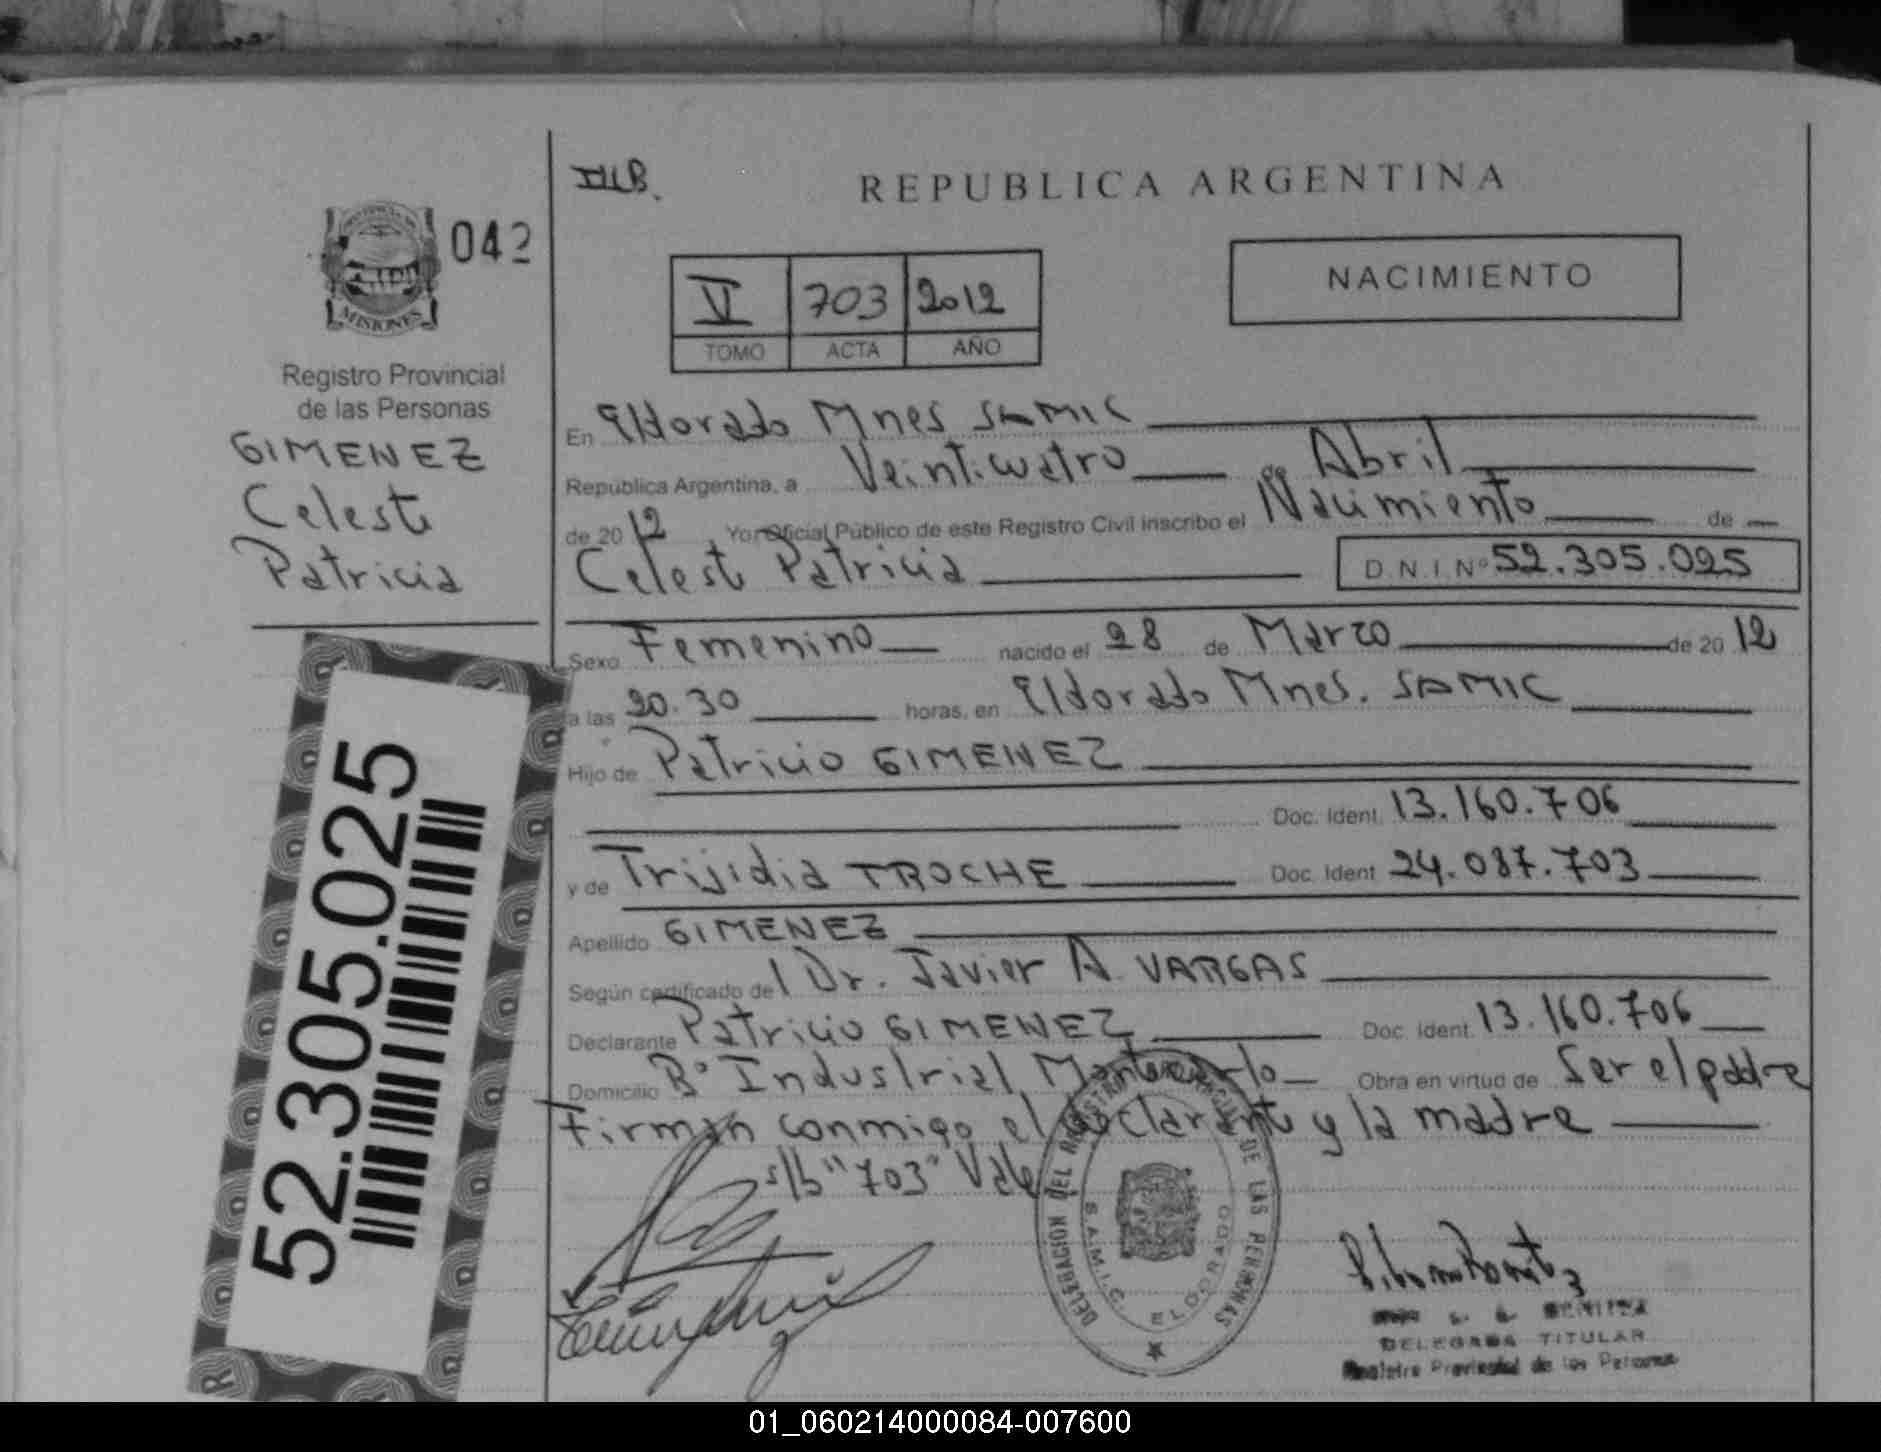 IIIB.
REPUBLICA ARGENTINA
042
MISIONES
V 703 2012
TOMO ACTA AÑO
NACIMIENTO
Registro Provincial
de las Personas
GIMENEZ
Celeste
Patricia
En Eldorado Mnes SAMIC
República Argentina, a Veinticuatro de Abril
de 2012 Yo, Oficial Público de este Registro Civil inscribo el Nacimiento de
Celeste Patricia D.N.I. Nº 52.305.025
Sexo Femenino nacido el 28 de Marzo de 2012
a las 20.30 horas, en Eldorado Mnes. SAMIC
Hijo de Patricio GIMENEZ
Doc. Ident. 13.160.706
y de Trijidia TROCHE Doc. Ident 24.087.703
Apellido GIMENEZ
Según certificado del Dr. Javier A. VARGAS
Declarante Patricio GIMENEZ Doc. Ident. 13.160.706
Domicilio Bº Industrial Montecarlo Obra en virtud de Ser el padre
Firman conmigo el declarante y la madre
s/b "703" Vale
52.305.025
DELEGACION DEL REGISTRO PROVINCIAL DE LAS PERSONAS
S.A.M.I.C. ELDORADO
BENITEZ
DELEGADA TITULAR
Registro Provincial de las Personas
01_060214000084-007600